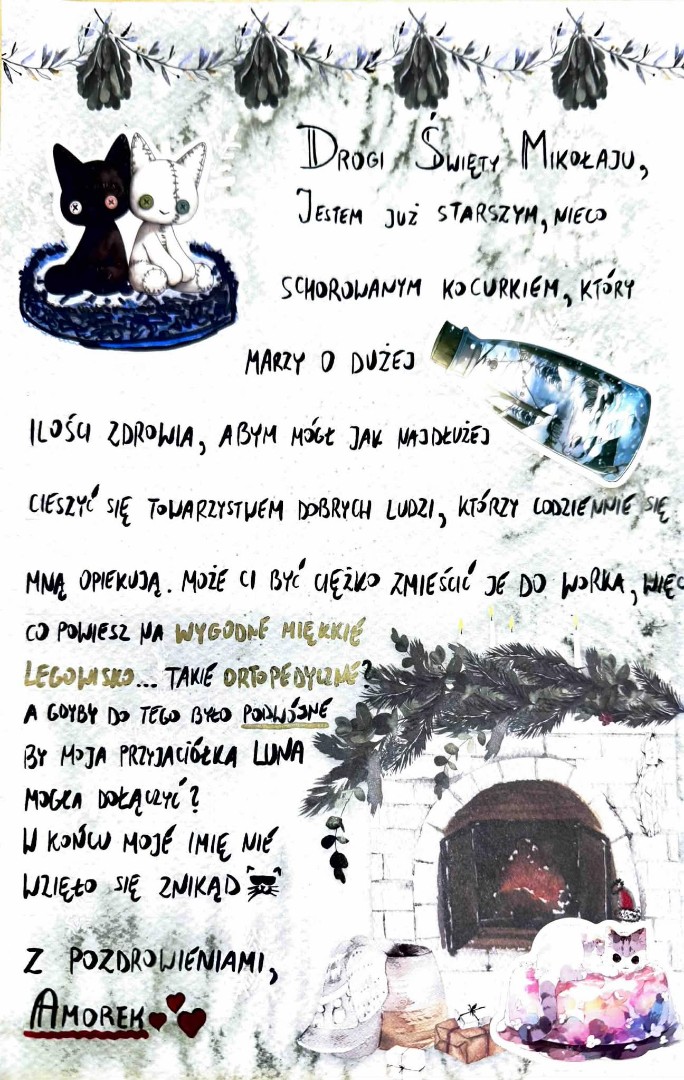 Drogi Święty Mikołaju,
Jestem już starszym, nieco
schorowanym kocurkiem, który
marzy o dużej
ilości zdrowia, abym mógł jak najdłużej
cieszyć się towarzystwem dobrych ludzi, którzy codziennie się
mną opiekują. Może Ci być ciężko zmieścić je do worka, więc
co powiesz na wygodne miękkie
legowisko... takie ortopedyczne?
A gdyby do tego było podwójne
by moja przyjaciółka Luna
mogła dołączyć?
W końcu moje imię nie
wzięło się znikąd
Z pozdrowieniami,
Amorek